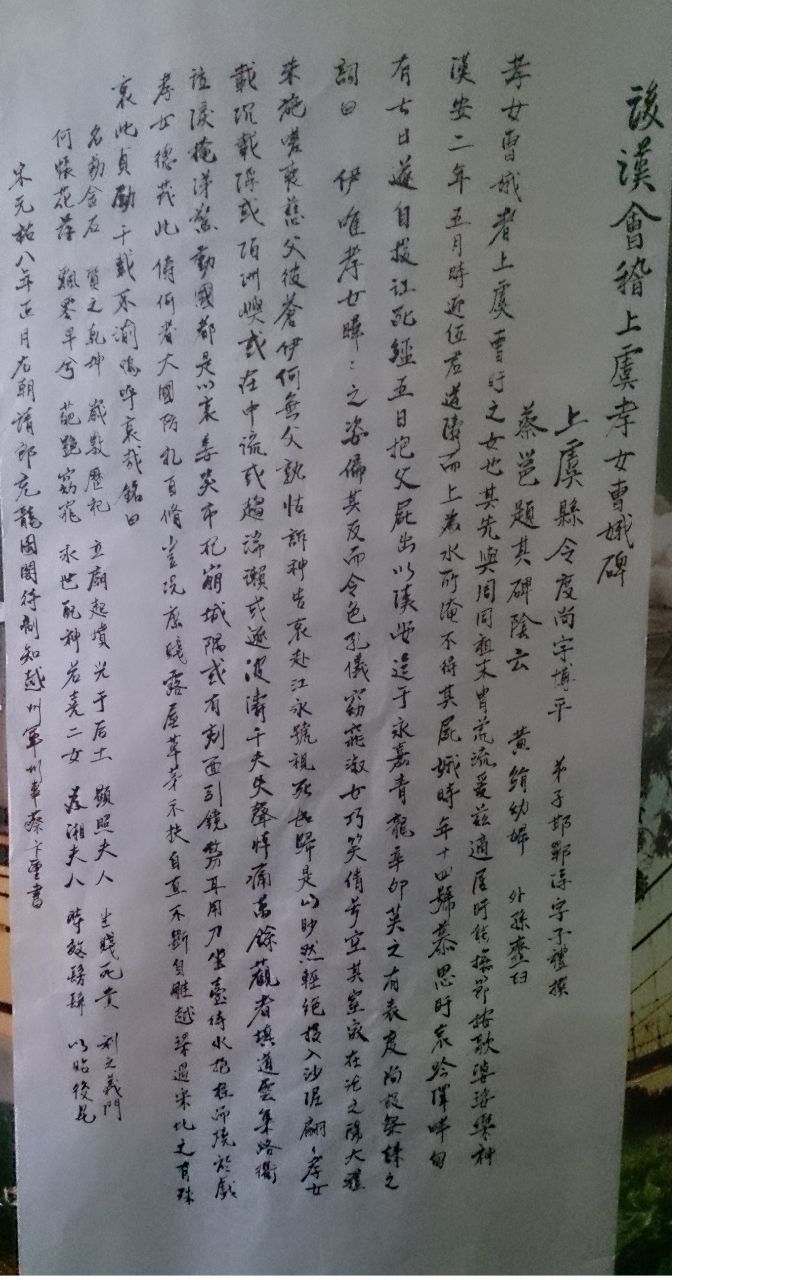 後漢會稽上虞孝女曹娥碑
上虞縣令度尚字博平 弟子邯鄲淳字子禮撰
蔡邕題其碑陰云 黃絹幼婦 外孫齏臼
孝女曹娥者上虞曹盱之女也其先與周同祖末胄荒流爰茲適居盱能撫節按歌婆娑樂神
漢安二年五月時迎伍君逆濤而上為水所淹不得其屍娥時年十四號慕思盱哀吟澤畔旬
有七日遂自投江死經五日抱父屍出以漢安迄于元嘉青龍辛卯莫之有表度尚設祭誄之
詞曰 伊唯孝女曄：之姿偏其反而令色孔儀窈窕淑女巧笑倩兮宜其室家在洽之陽大禮
未施嗟喪慈父彼蒼伊何無父孰怙訴神告哀赴江永號視死如歸是以眇然輕絕投入沙泥翩：孝女
載沉載浮或泊洲嶼或在中流或趨湍瀨或逐波濤千夫失聲悼痛萬餘觀者填道雲集路衢
泣淚掩涕驚動國都是以哀姜哭市杞崩城隅或有剋面引鏡剺耳用刀坐臺待水抱柱而燒於戲
孝女德茂此儔何者大國防禮自脩豈況庶賤露屋草茅不扶自直不斲自雕越梁過宋比之有殊
哀此貞勵千載不渝嗚呼哀哉銘曰
名勒金石 質之乾坤 歲數歷祀 立廟起墳 光于后土 顯照夫人 生賤死貴 利之義門
何悵花落 飄零早兮 葩艷窈窕 永世配神 若堯二女 為湘夫人 時效髣髴 以昭後昆
宋元祐八年正月左朝請郎充龍圖閣待制知越州軍州事蔡卞重書